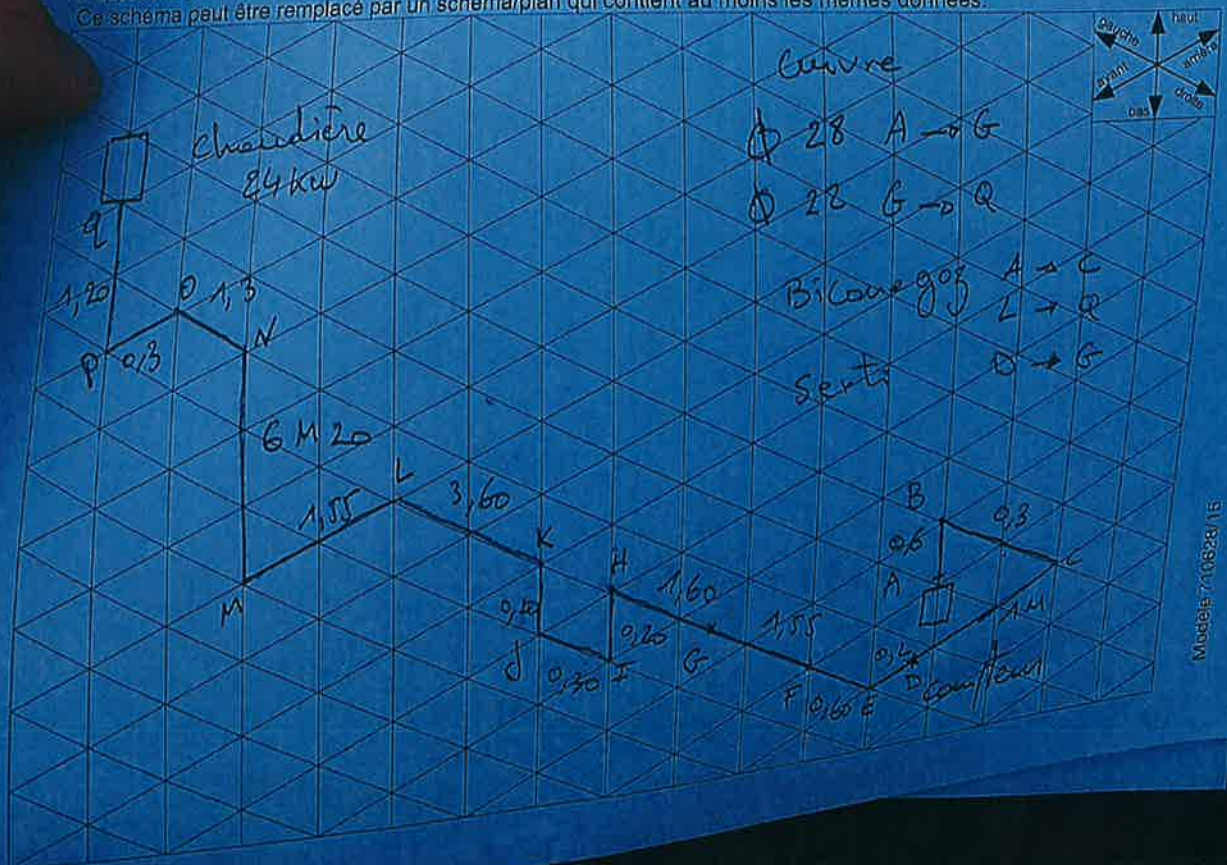 Ce schéma peut être remplacé par un schéma/plan qui contient au moins les mêmes données.
gauche
haut
arrière
avant
droite
bas
Chaudière
24 kw
Cuivre
ϕ 28 A → G
ϕ 22 G → Q
Biconegaz A → C
L → Q
Serti D → G
q
1,20
O 1,3
P 0,3
N
6 M 20
M
1,55
L
3,60
K
J
0,30
I
0,20
H
1,60
G
1,55
F
0,60
E
D
Compteur
1M
C
0,3
B
0,6
A
Modèle 710628/15